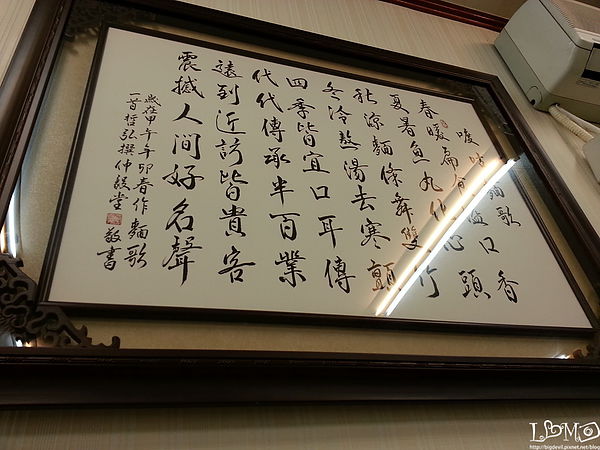 麵歌
春暖扁食口香
夏暑魚丸心頭
秋涼麵條舞雙竹
冬冷熬湯去寒顫
四季皆宜口耳傳
代代傳承半百業
遠到近訪皆貴客
震撼人間好名聲
歲在甲午年卯春作麵歌
一首哲弘撰仲毅堂敬書
LBMO
http://bigdevil.pixnet.net/blog